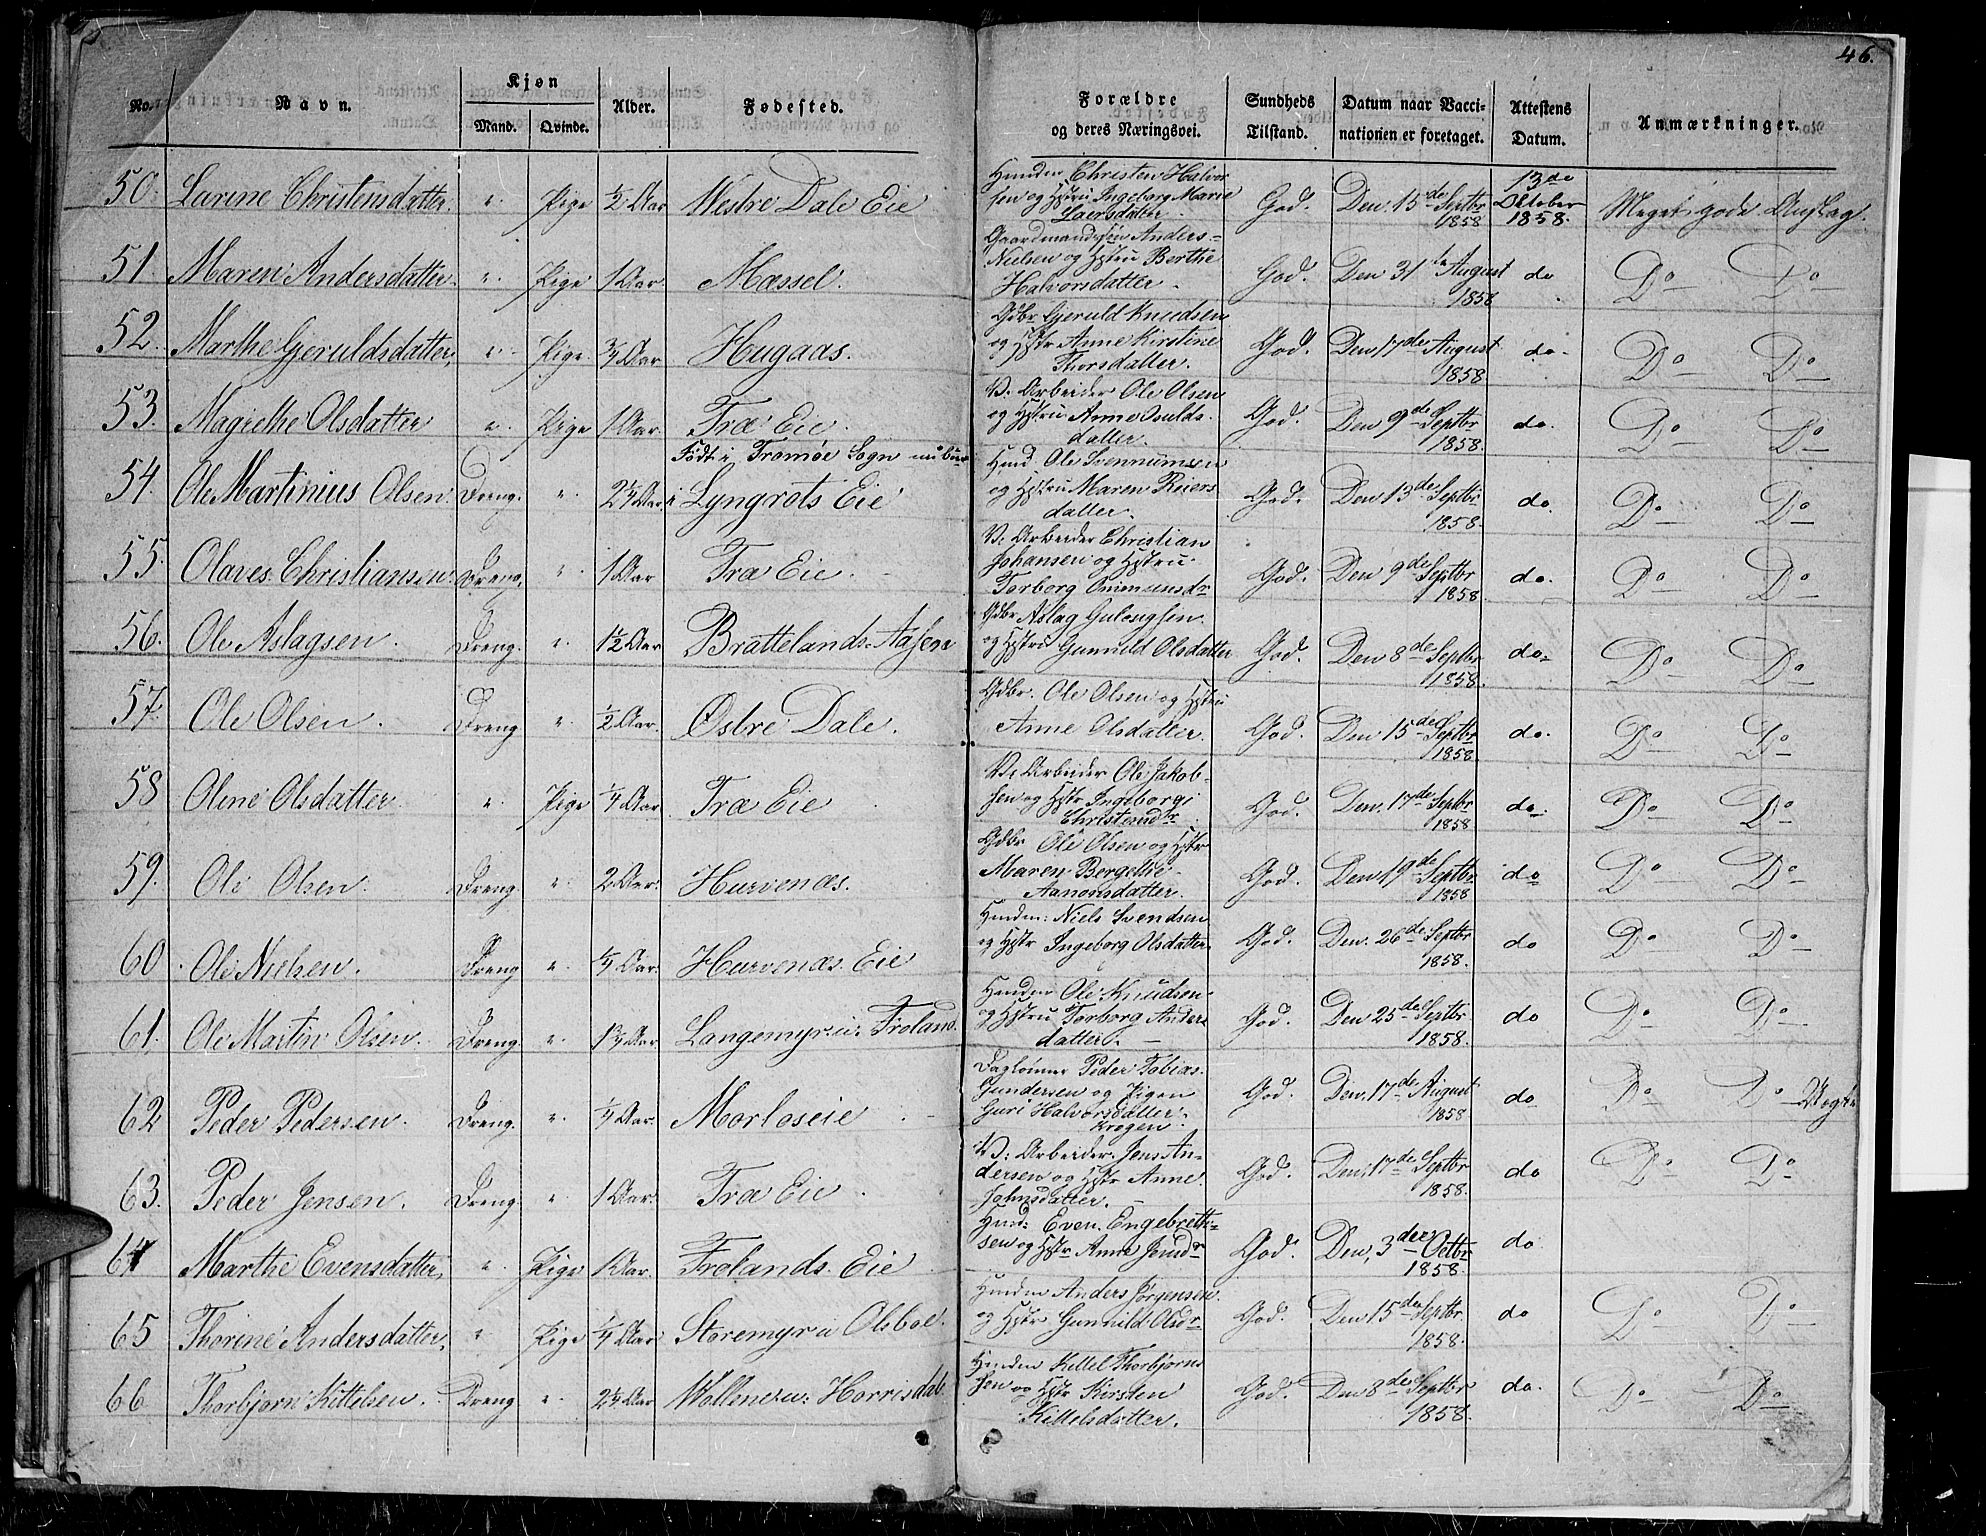 46.
No. Navn. Kjøn Mand. Qvinde. Alder. Fødested. Forældre og deres Næringsvei. Sundheds Tilstand. Datum naar Vaccinationen er foretaget. Attestens Datum. Anmærkninger.
50. Larine Christensdatter. " Pige 1/2 Aar Westre Dale Eie
Husmdn Christen Halvor
sen og Hstru Ingeborg Marie
Laersdatter. God. Den 15de Septbr 1858 13de Oktober 1858. Meget gode Anslag.
51. Maren Andersdatter. " Pige 1 Aar Mæssel.
Gaardmandssøn Anders
Nielsen og Hstru Berthe
Halvorsdatter. God. Den 31te August 1858 do Do Do
52. Marthe Geruldsdatter, " Pige 3/4 Aar Hugaas.
Gdbr Gjeruld Knudsen
og Hstr Anne Kirstine
Thorsdatter. God. Den 17de August 1858 do. Do Do
53. Magrethe Olsdatter " Pige 1 Aar. Træ Eie.
V. Arbeider Ole Olsen
og Hstru Anne Osulds
datter. God. Den 9de Septbr 1858. do. Do Do
Født i Tromøe Sogn nu bu
54. Ole Martinius Olsen Dreng. " 2 1/4 Aar i Lyngrots Eie
Husmd Ole Svennumsen
og Hstru Maren Reiers
datter. God. Den 13de Septbr 1858. do. Do Do
55. Olaves Christiansen. Dreng. " 1 Aar Træ Eie.
V. Arbeider Christian
Johansen og Hstru
Torborg Ommunsdr God. Den 9de Septbr 1858 do. Do Do
56. Ole Aslagsen. Dreng. " 1 1/2 Aar Brattelands Aasen
Gdbr Aslag Gulesugsen
og Hstru Gunuld Olsdatter God. Den 8de Septbr 1858. do. Do Do
57. Ole Olsen. Dreng " 1/2 Aar. Østre Dale.
Gdbr. Ole Olsen og Hstru
Anne Olsdatter. God. Den 15de Septbr 1858. do. Do Do
58 Oline Olsdatter " Pige 1/4 Aar Træ Eie
V. Arbeider Ole Jakob
sen og Hstr Ingeborg
Christensdr God. Den 17de Septbr 1858 do. Do Do
59. Ole Olsen. Dreng. " 2 Aar. Hurvenæs.
Gdbr Ole Olsen og Hstr
Maren Bergethe
Aanonsdatter. God. Den 19de Septbr 1858 do Do Do
60. Ole Nielsen. Dreng " 1/4 Aar. Hurvenæs Eie
Husmdn: Niels Svendsen
og Hstr Ingeborg Olsdatter. God. Den 26de Septbr 1858. do Do Do
61. Ole Martin Olsen. Dreng. " 1 3/4 Aar. Langemyr u. Froland.
Husmdn Ole Knudsen
og Hstru Torborg Anders
datter. God. Den 25de Septbr 1858. do Do Do
62 Peder Pedersen. Dreng. " 1/4 Aar. Morloseie
Daglønner Peder Tobias
Gundersen og Pigen
Guri Halvorsdatter
Krogen. God. Den 17de August 1858 do Do Do
63. Peder Jensen. Dreng " 1 Aar. Træ Eie.
V. Arbeider Jens An
dersen og Hstr Anne
Johnsdatter. God. Den 17de Septbr 1858. do Do Do
64 Marthe Evensdatter, " Pige 1 Aar. Frolands Eie
Husmd: Even Engebreth
sen og Hstr Anne God. Den 3die Octbr 1858. do
65 Thorine Andersdatter. " Pige 1/4 Aar Storemyr u Olsboe.
Husmdn Anders Jørgensen.
og Hstr Gunuld Olsdr God. Den 15de Septbr 1858. do Do Do
66 Thorbjørn Kittelsen. Dreng " 2 1/4 Aar Wollene u: Horrisdal.
Husmdn Kittel Thorbjørn
sen og Hstr Kirsten
Kittelsdatter. God. Den 8de Septbr 1858. do. Do Do